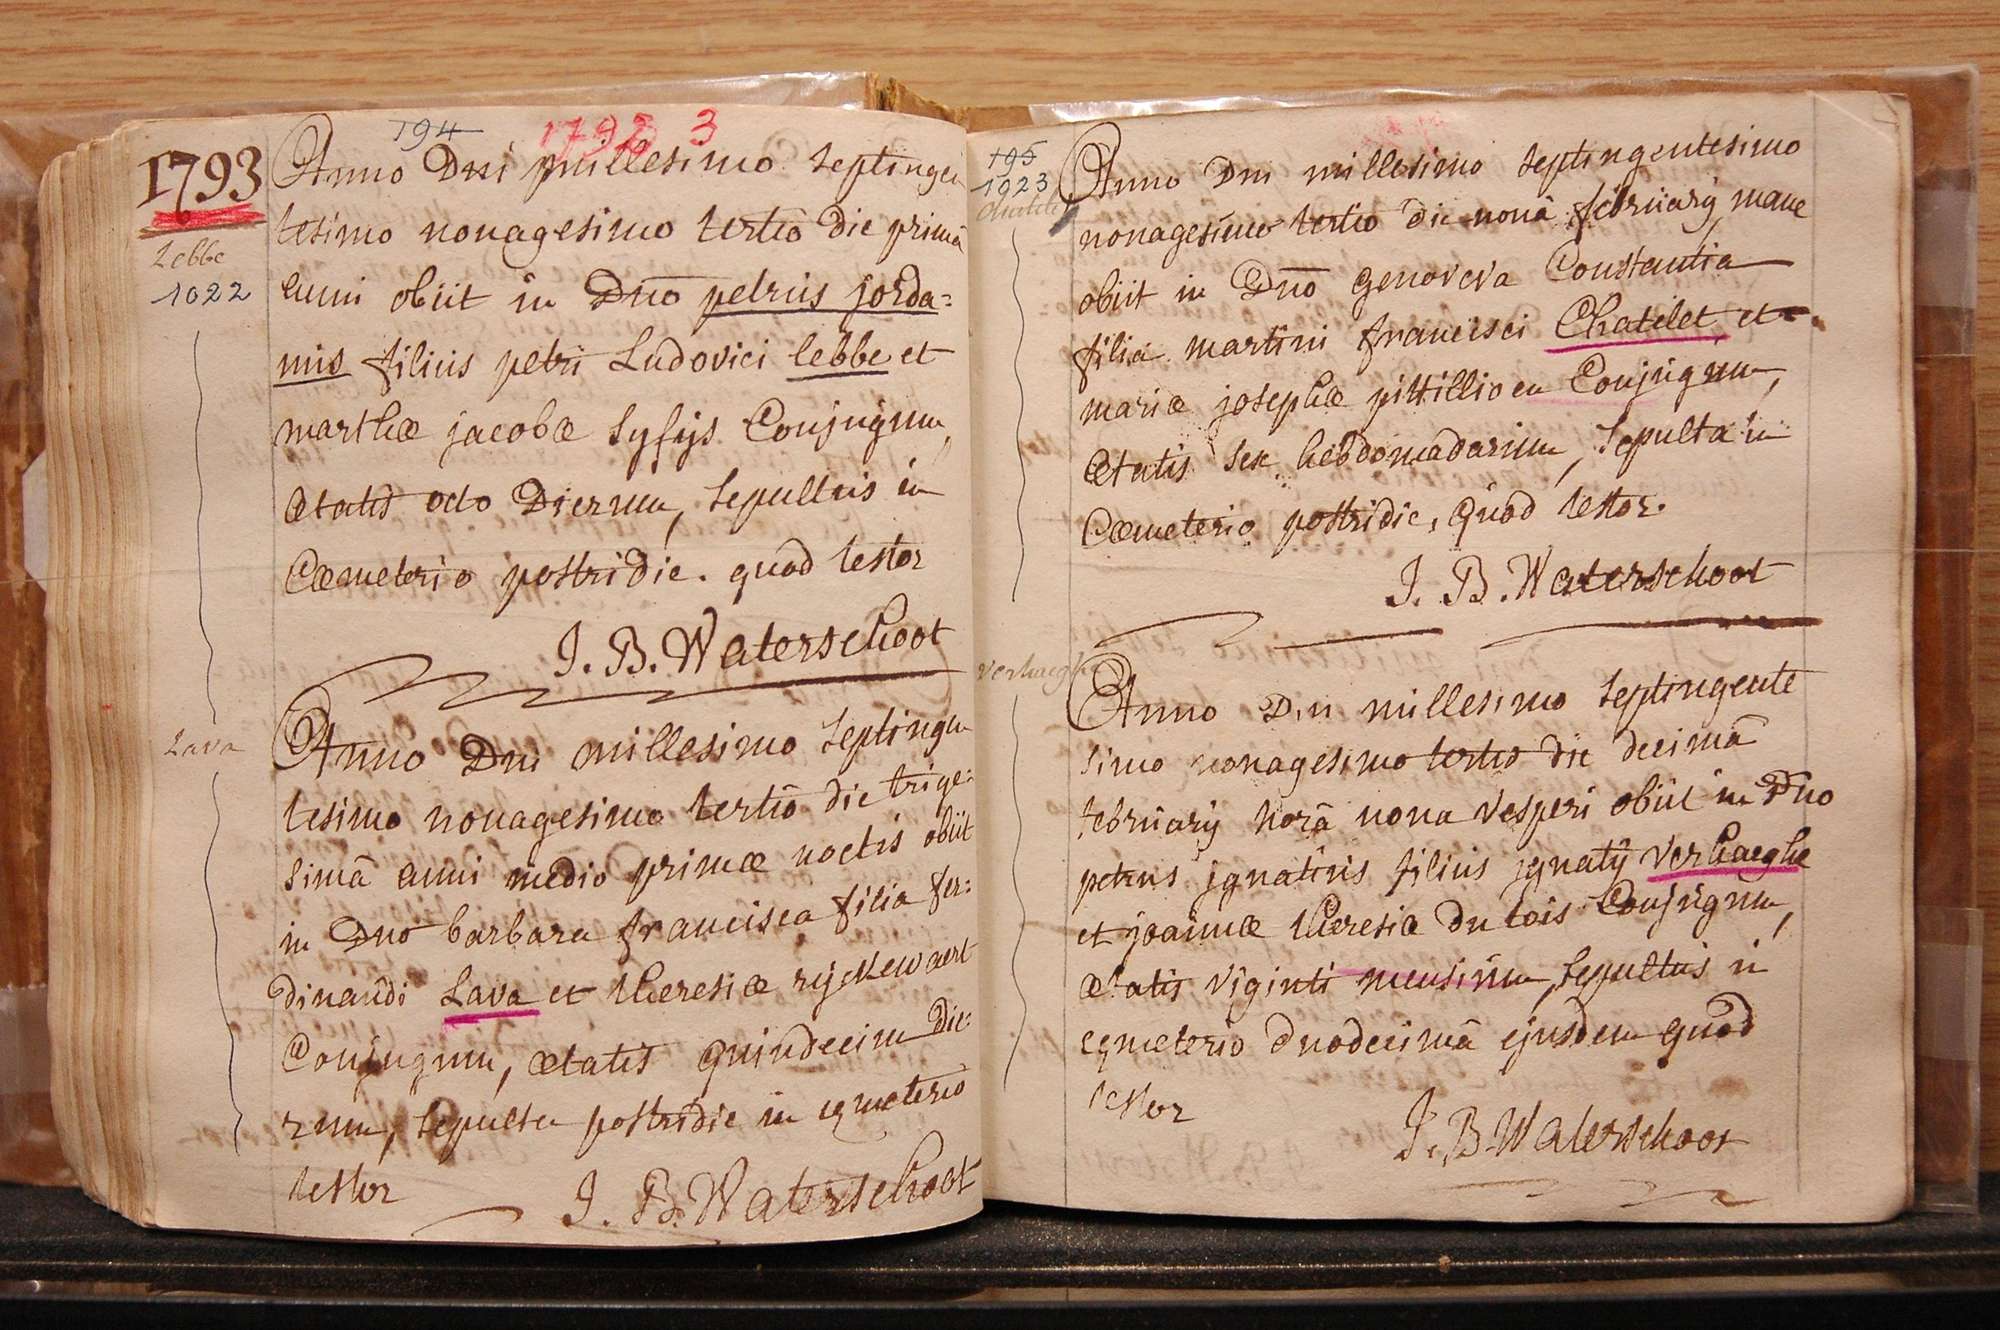 194
1792 3
1793
Lebbe
1022
Anno Dni millesimo septingen
tesimo nonagesimo tertio die primâ
anni obiit in Dno petrus jorda=
nus filius petri Ludovici lebbe et
marthæ jacobæ Syfijs Conjugum,
ætatis octo Dierum, sepultus in
Cæmeterio postridie. quod testor
J. B. Waterschoot
Lava
Anno Dni millesimo septingen
tesimo nonagesimo tertio die trige=
simâ anni medio primæ noctis obiit
in Dno barbara francisca filia fer=
dinandi Lava et theresiæ rijckewaert
Conjugum, ætatis quindecim die=
rum, sepulta postridie in cæmeterio
testor
J. B. Waterschoot
195
1023
Chatelet
Anno Dni millesimo septingentesimo
nonagesimo tertio die nonâ februarij mane
obiit in Dno genoveva Constantia
filia martini francisci Chatelet et
mariæ josephæ pittillioen Conjugum,
ætatis sex hebdomadarum, sepulta in
Cæmeterio postridie, quod testor.
J. B. Waterschoot
verhaeghe
Anno Dni millesimo septingente
simo nonagesimo tertio die decimâ
februarij horâ nona vesperi obiit in Dno
petrus jgnatius filius jgnatij verhaeghe
et joannæ theresiæ du tois Conjugum,
ætatis viginti mensium, sepultus in
cæmeterio duodecimâ ejusdem quod
testor
J. B. Waterschoot